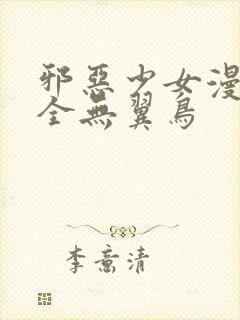 邪惡少女漫
全無翼鳥
李意清